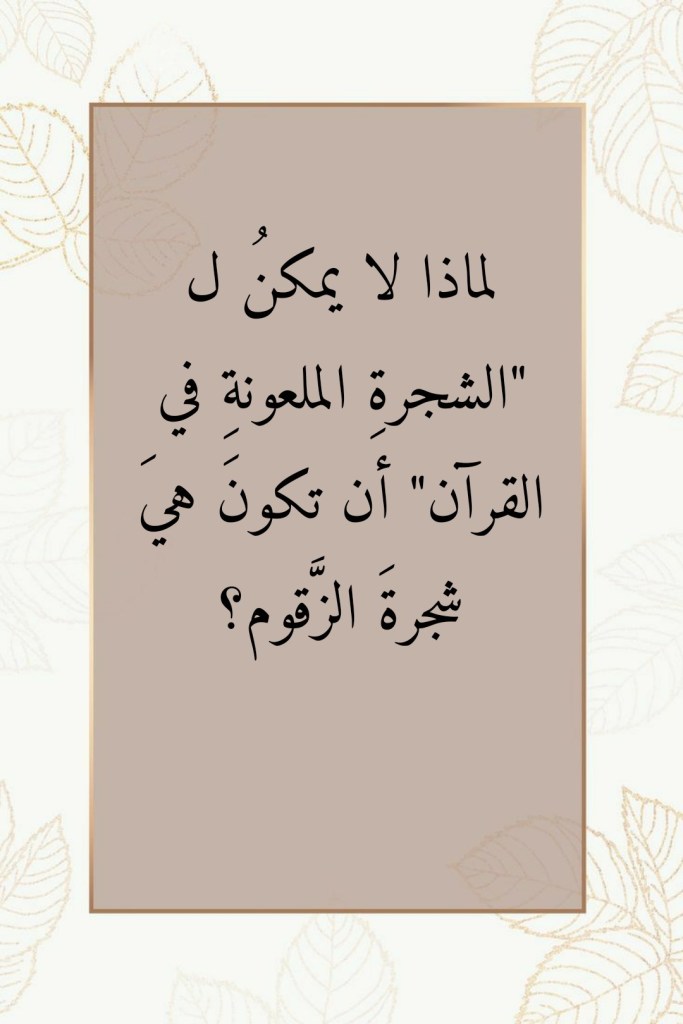 لماذا لا يمكنُ ل
"الشجرةِ الملعونةِ في
القرآن" أن تكونَ هيَ
شجرةَ الزَّقوم؟